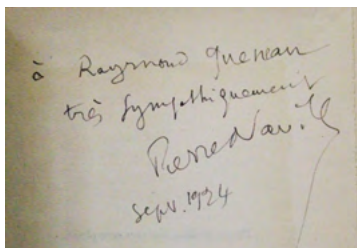 à Raymond Queneau
très sympathiquement
Pierre Naville
Sept. 1924